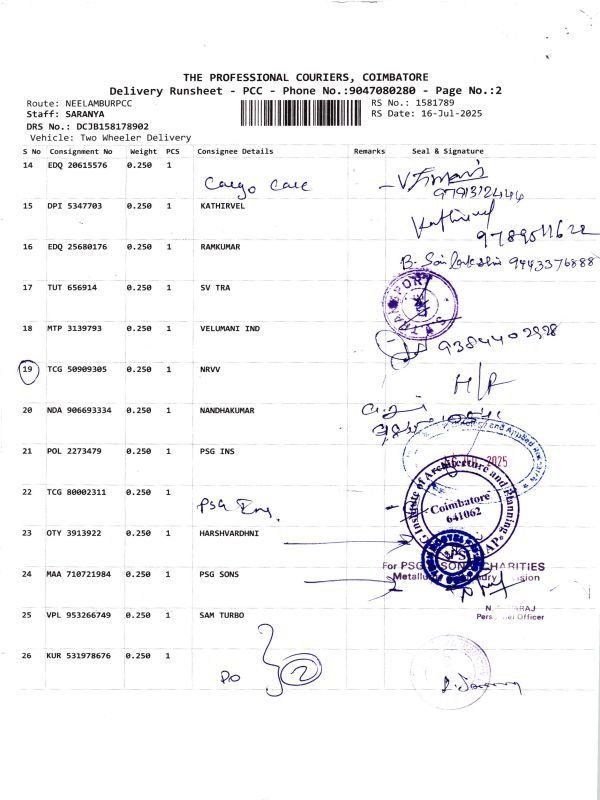 THE PROFESSIONAL COURIERS, COIMBATORE
Delivery Runsheet - PCC - Phone No.:9047080280 - Page No.:2
Route: NEELAMBURPCC
RS No.: 1581789
Staff: SARANYA
RS Date: 16-Jul-2025
DRS No.: DCJB158178902
Vehicle: Two Wheeler Delivery
S No Consignment No Weight PCS Consignee Details Remarks Seal & Signature
14 EDQ 20615576 0.250 1
Cargo Care
9791312444
15 DPI 5347703 0.250 1 KATHIRVEL
Kathirvel
16 EDQ 25680176 0.250 1 RAMKUMAR
9443376888
17 TUT 656914 0.250 1 SV TRA
18 MTP 3139793 0.250 1 VELUMANI IND
19 TCG 50909305 0.250 1 NRVV
H/P
20 NDA 906693334 0.250 1 NANDHAKUMAR
21 POL 2273479 0.250 1 PSG INS
2025
22 TCG 80002311 0.250 1
PSG
Institute of Architecture and Planning
Coimbatore
641062
23 OTY 3913922 0.250 1 HARSHVARDHNI
24 MAA 710721984 0.250 1 PSG SONS
For PSG SONS CHARITIES
25 VPL 953266749 0.250 1 SAM TURBO
26 KUR 531978676 0.250 1
P.O
2